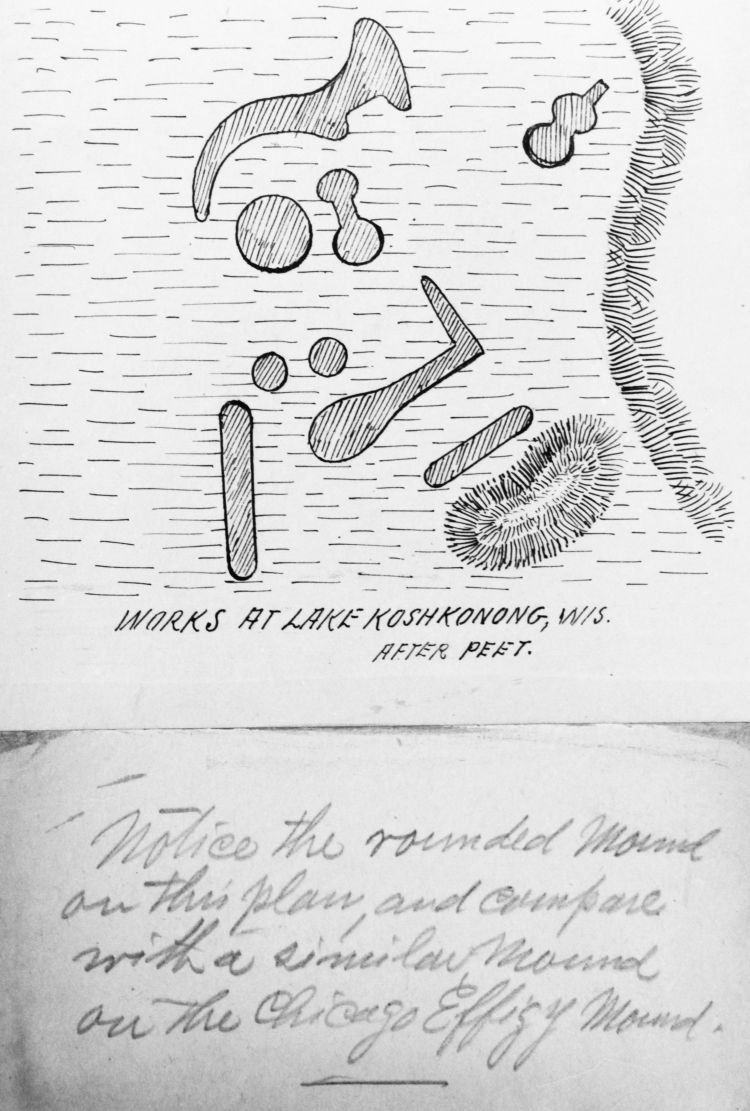 WORKS AT LAKE KOSHKONONG, WIS.
AFTER PEET.
Notice the rounded Mound
on this plan, and compare
with a similar Mound
on the Chicago Effigy Mound.